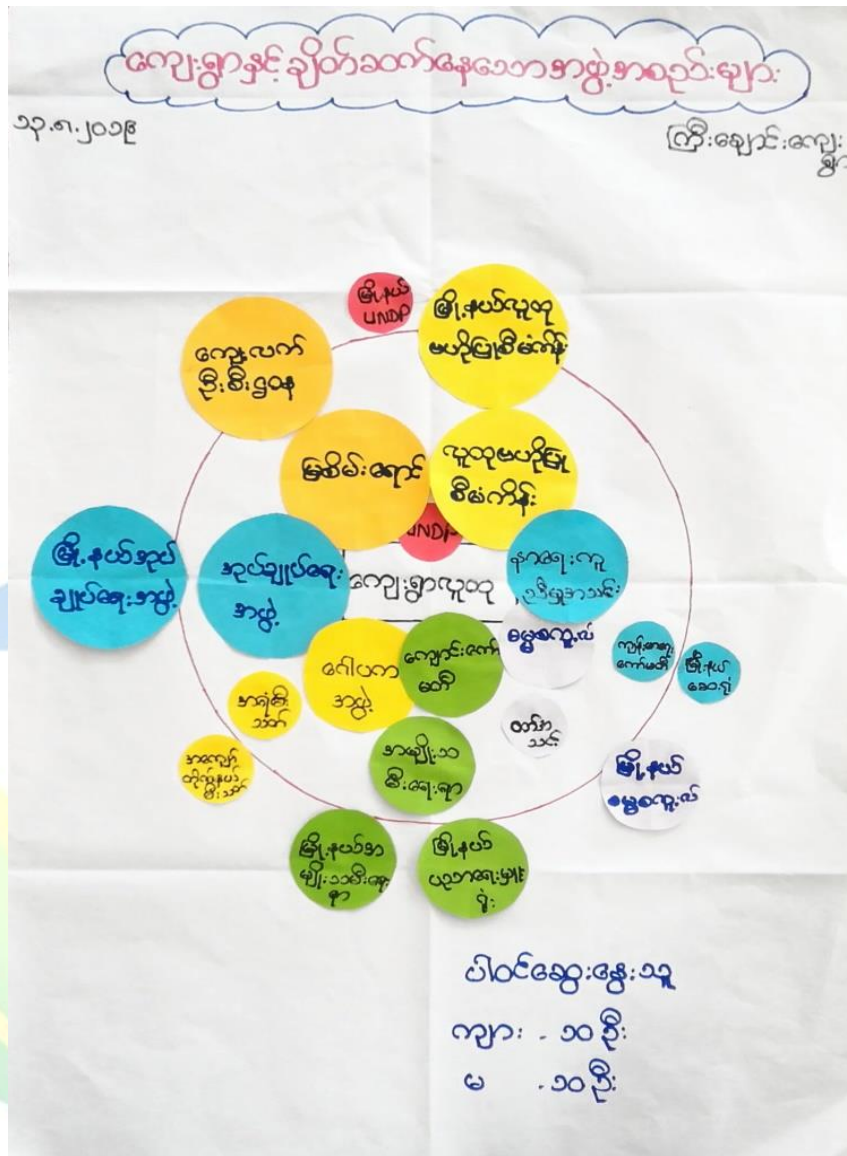 ကျေးရွာနှင့်ချိတ်ဆက်နေသောအဖွဲ့အစည်းများ
၁၃.၈.၂၀၁၉
ကြီးချောင်းကျေး
ရွာ
မြို့နယ်
UNDP
မြို့နယ်လူထု
ဗဟိုပြုစီမံကိန်း
ကျေးလက်
ဦးစီးဌာန
မြစိမ်းရောင်
လူထုဗဟိုပြု
စီမံကိန်း
UNDP
မြို့နယ်အုပ်
ချုပ်ရေးအဖွဲ့
အုပ်ချုပ်ရေး
အဖွဲ့
ကျေးရွာလူထု
နာရေးကူ
ညီမှုအသင်း
ဂေါပက
အဖွဲ့
ကျောင်းကော်
မတီ
ဓမ္မစကူးလ်
ကျန်းမာရေး
ကော်မတီ
မြို့နယ်
ဆေးရုံ
အရံမီး
သတ်
အမျိုးသ
မီးရေးရာ
မြို့နယ်
ဓမ္မစကူးလ်
မီးသတ်
မြို့နယ်အ
မျိုးသမီးရေး
ရာ
မြို့နယ်
ပညာရေးမှူး
ရုံး
ပါဝင်ဆွေးနွေးသူ
ကျား - ၁၀ ဦး
မ - ၁၀ ဦး